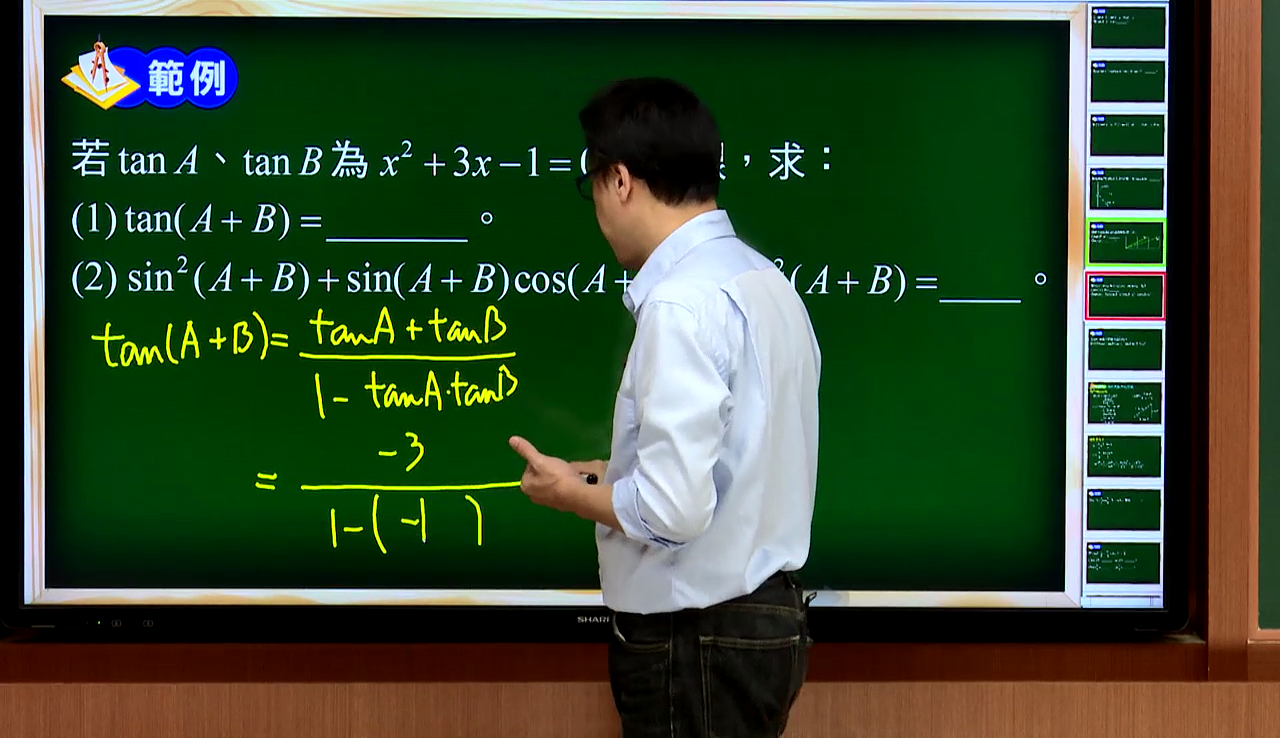 範例
若 tan A、tan B 為 x² + 3x − 1 = ，求：
(1) tan(A + B) = ________ 。
(2) sin²(A + B) + sin(A + B)cos(A + ²(A + B) = ____ 。
tan(A+B)= \frac{tanA + tanB}{1 - tanA·tanB}
= \frac{-3}{1-(-1 )}
SHARP